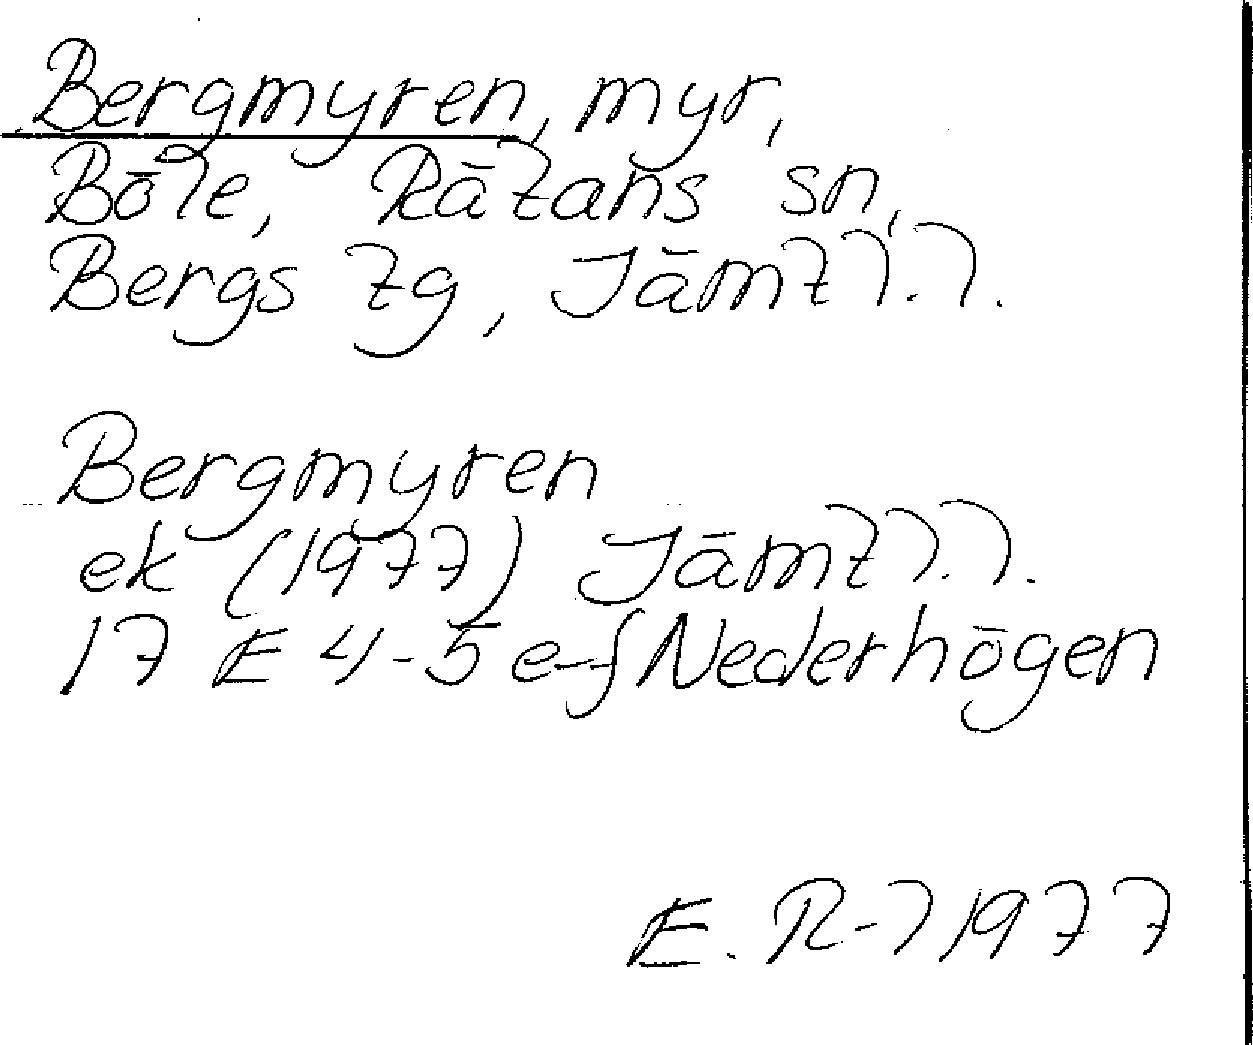 Bergmyren, myr,
Böle, Rätans sn,
Bergs tg, Jämtl.l.
Bergmyren
ek (1977) Jämtl.l.
17 E 4-5 e-f Nederhögen
E. R-l 1977